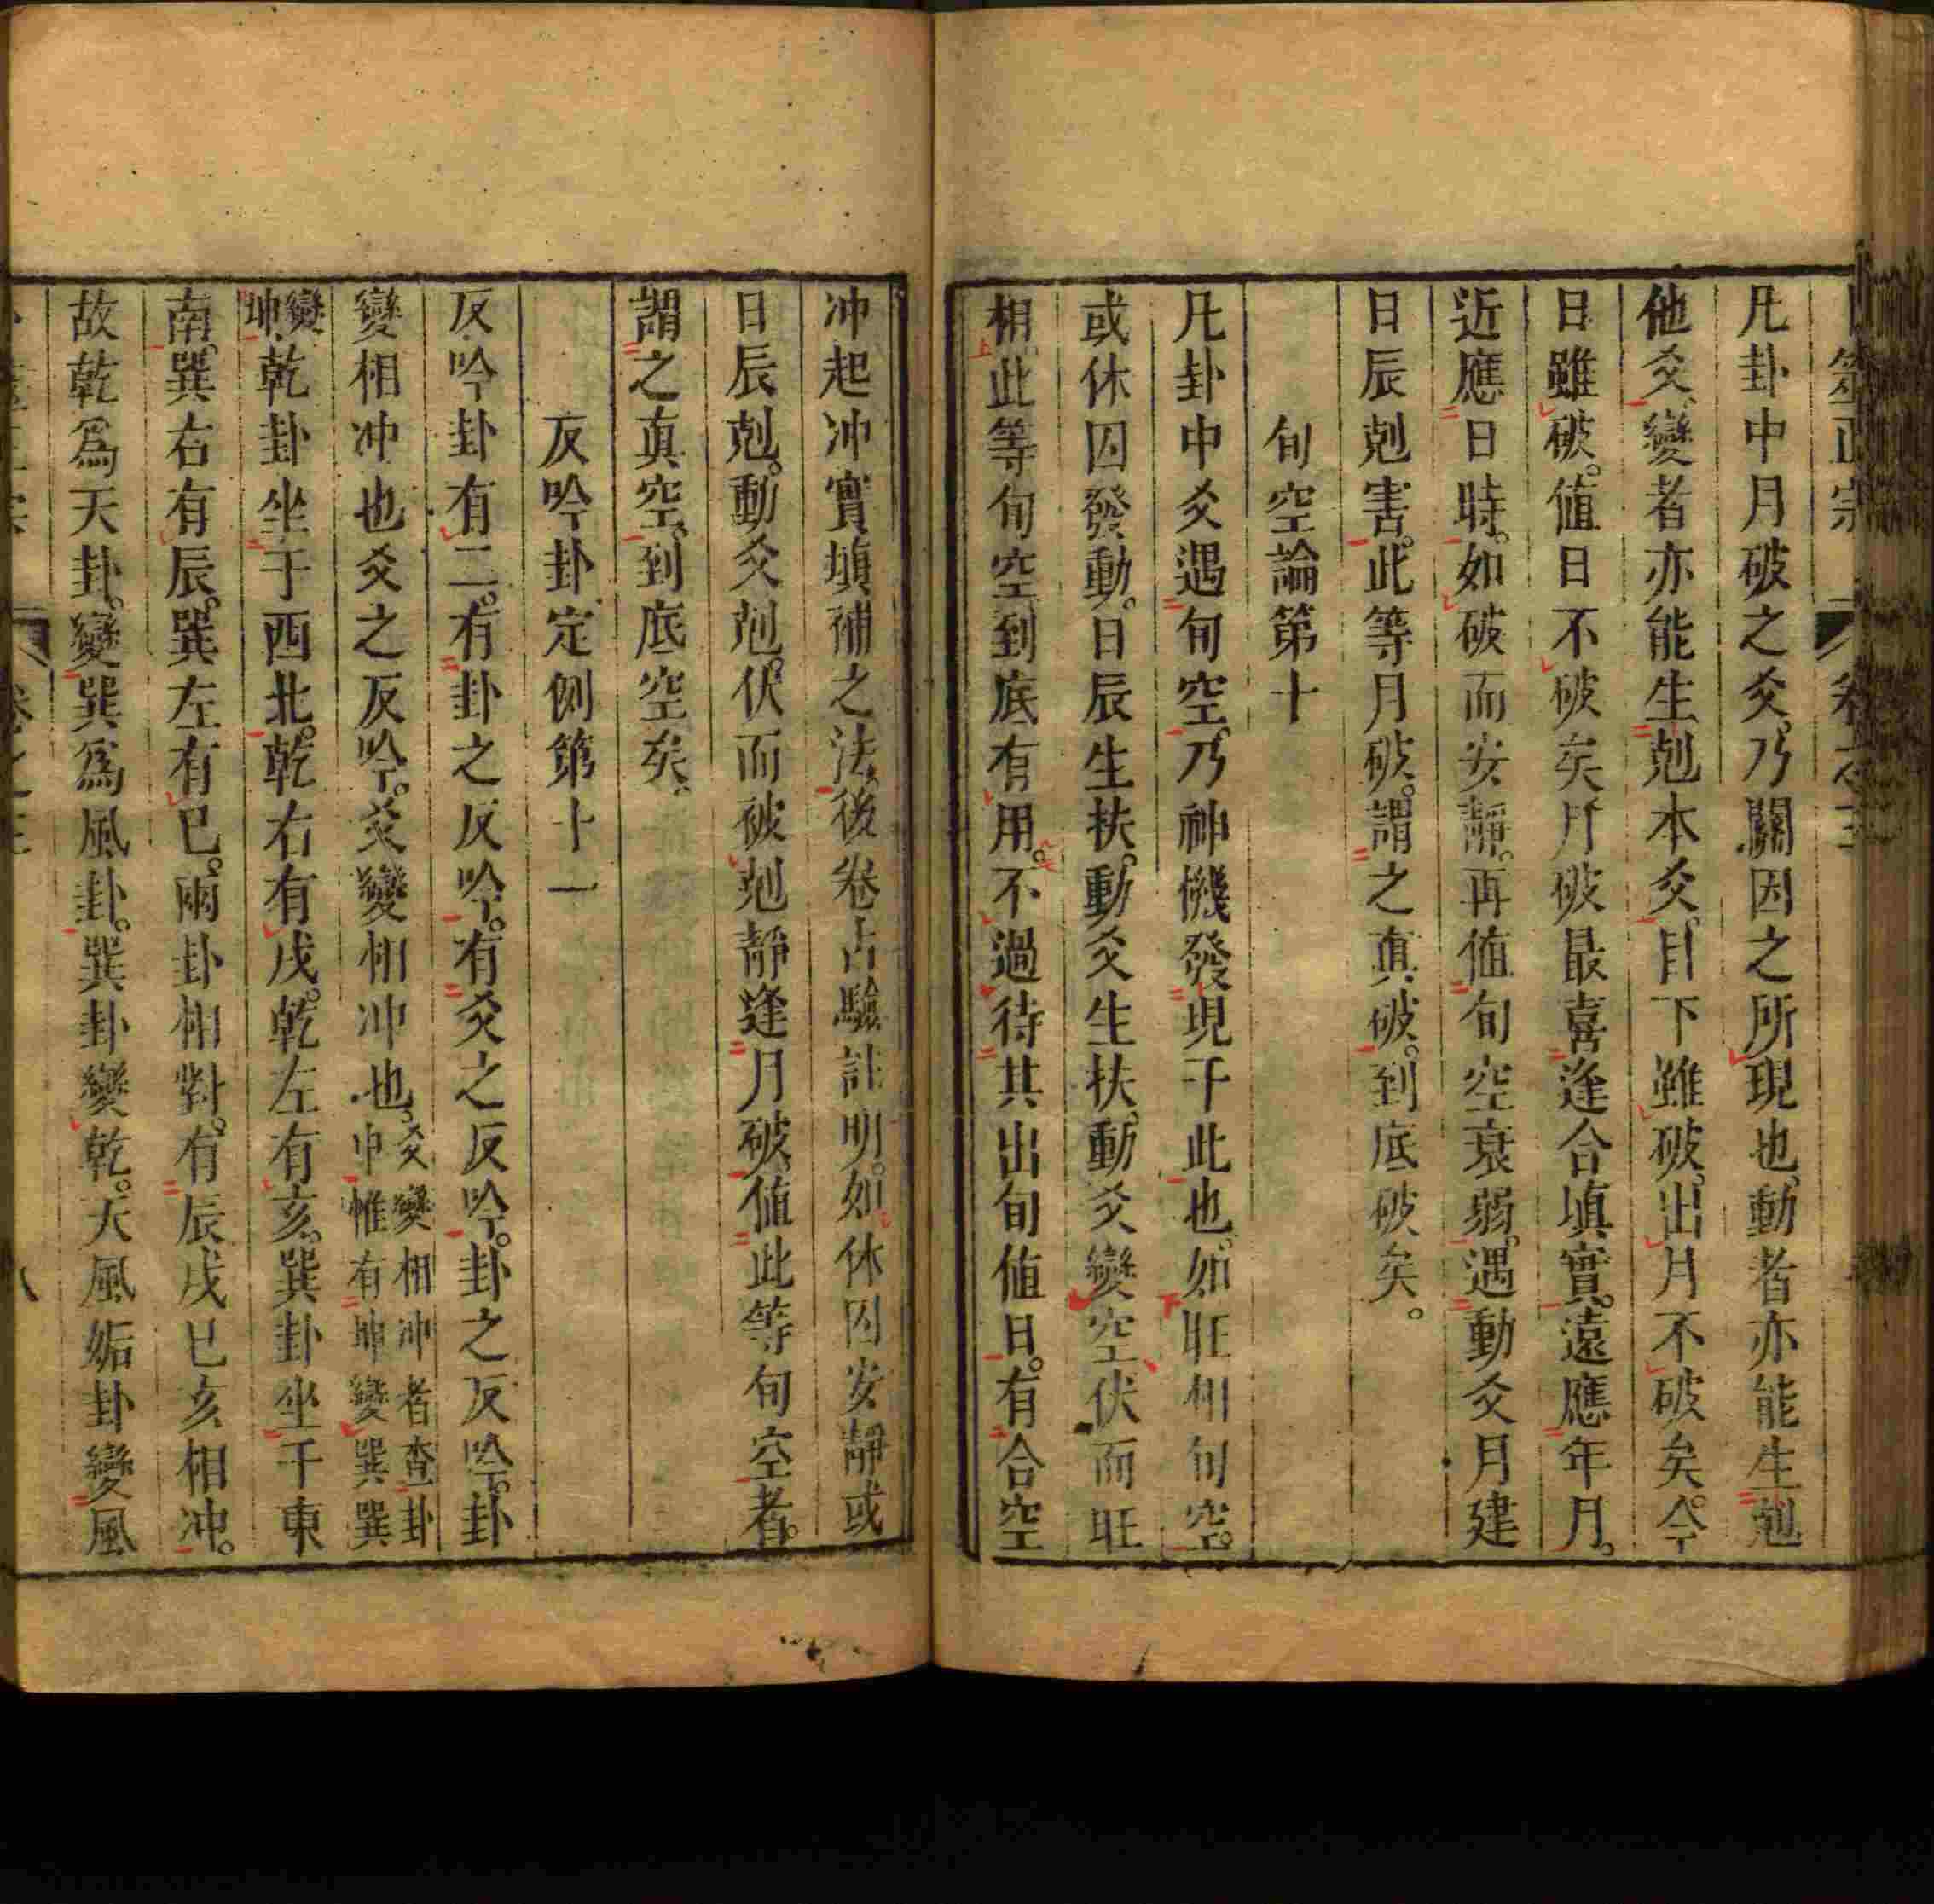 卜筮正宗 卷之三
凡卦中月破之爻。乃關因之所現也。動者亦能生剋
他爻。變者亦能生剋本爻。目下雖破。出月不破矣。今
日雖破。值日不破矣。月破最喜逢合填實。遠應年月。
近應日時。如破而安靜。再值旬空衰弱。遇動爻月建
日辰剋害。此等月破。謂之真破。到底破矣。
旬空論第十
凡卦中爻遇旬空。乃神機發現于此也。如旺相旬空。
或休囚發動。日辰生扶。動爻生扶。動爻變空。伏而旺
相。此等旬空到底有用。不過待其出旬值日。有合空
冲起冲實填補之法。後卷占驗註明。如休囚安靜或
日辰剋。動爻剋。伏而被剋。靜逢月破。值此等旬空者。
謂之真空。到底空矣。
反吟卦定例第十一
反吟卦有二。有卦之反吟。有爻之反吟。卦之反吟。卦
變相冲也爻之反吟。爻變相冲也。爻變相冲者查卦中惟有坤變巽巽
變坤。乾卦坐于西北。乾右有戌。乾左有亥。巽卦坐于東
南。巽右有辰。巽左有巳。兩卦相對。有辰戌巳亥相冲。
故乾爲天卦。變巽爲風卦。巽卦變乾。天風姤卦變風